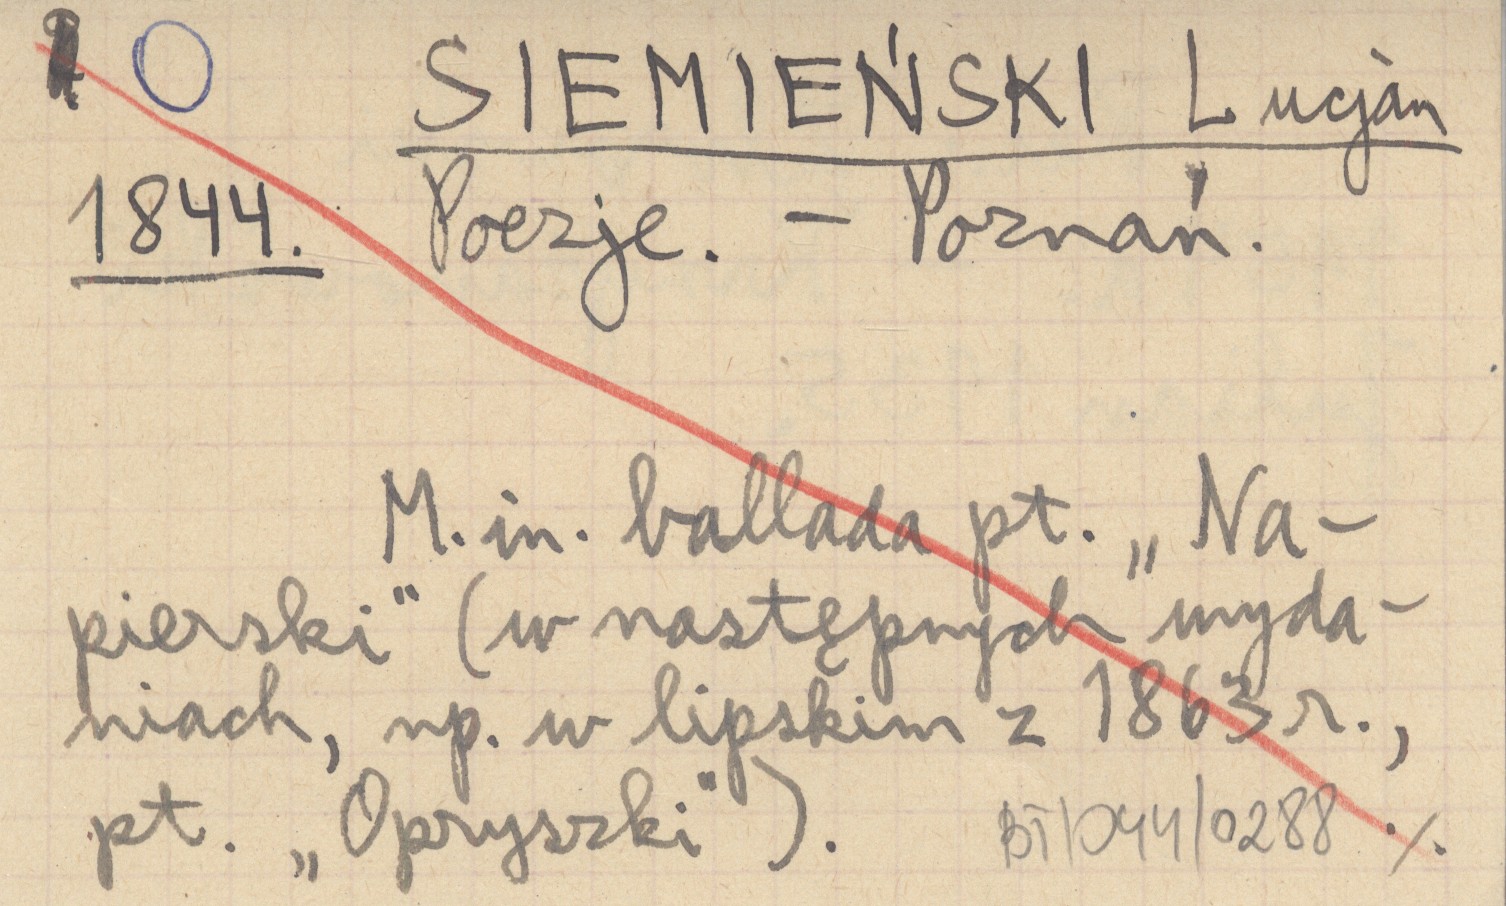 SIEMIEŃSKI Lucjan
1844. Poezje. – Poznań.
M. in. ballada pt. „Na-
pierski" (w następnych wyda-
niach, np. w lipskim z 1863 r.,
pt. „Opryszki").
BT/044/0288 ./.